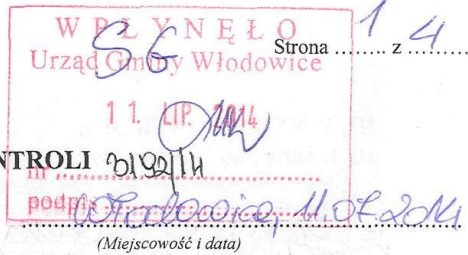 WPŁYNĘŁO
Urząd Gminy Włodowice
SG
Strona 1 z 4
11. LIP. 2014
NTROLI
nr 3192/14
podpis
Włodowice, 11.07.2014
(Miejscowość i data)